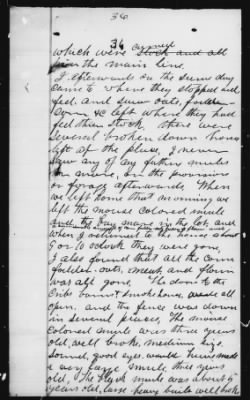 36
36
which were carried
from the main line.
I afterwards on the same day
came to where they stopped and
fed. and saw oats, fodder
Corn &c left where they had
fed their stock, there were
several broken down
left at the place, I never
saw any of my father mules
any more, or the provision
or forage afterwards. When
we left home that morning we
left the mouse colored mule
and the bay mare in the lot and
when I returned to the house about
9 or 10 o'clock they were gone,
I also found that all the corn
fodder. oats, meat, and flour
was all gone. The doors to the
Cribs barn & smokehouse were all
open, and the fence was down
in several places, The mouse
colored mule was three years
old, well broke, medium size.
sound, good eyes, would have made
a very large mule three years
old, The black mule was about 5
years old, large heavy built well broke